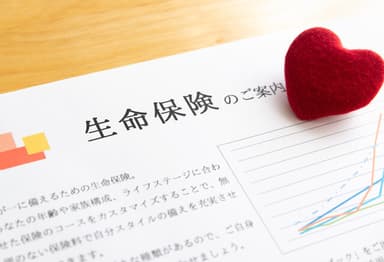 生命保険のご案内
が一に備えるための生命保険。
なたの年齢や家族構成、ライフステージに合わ
せた保険のコースをカスタマイズすることで、無
のない保険料で自分スタイルの備えを充実させ
種類があるので、ご自身
せましょう。
ブック」をご